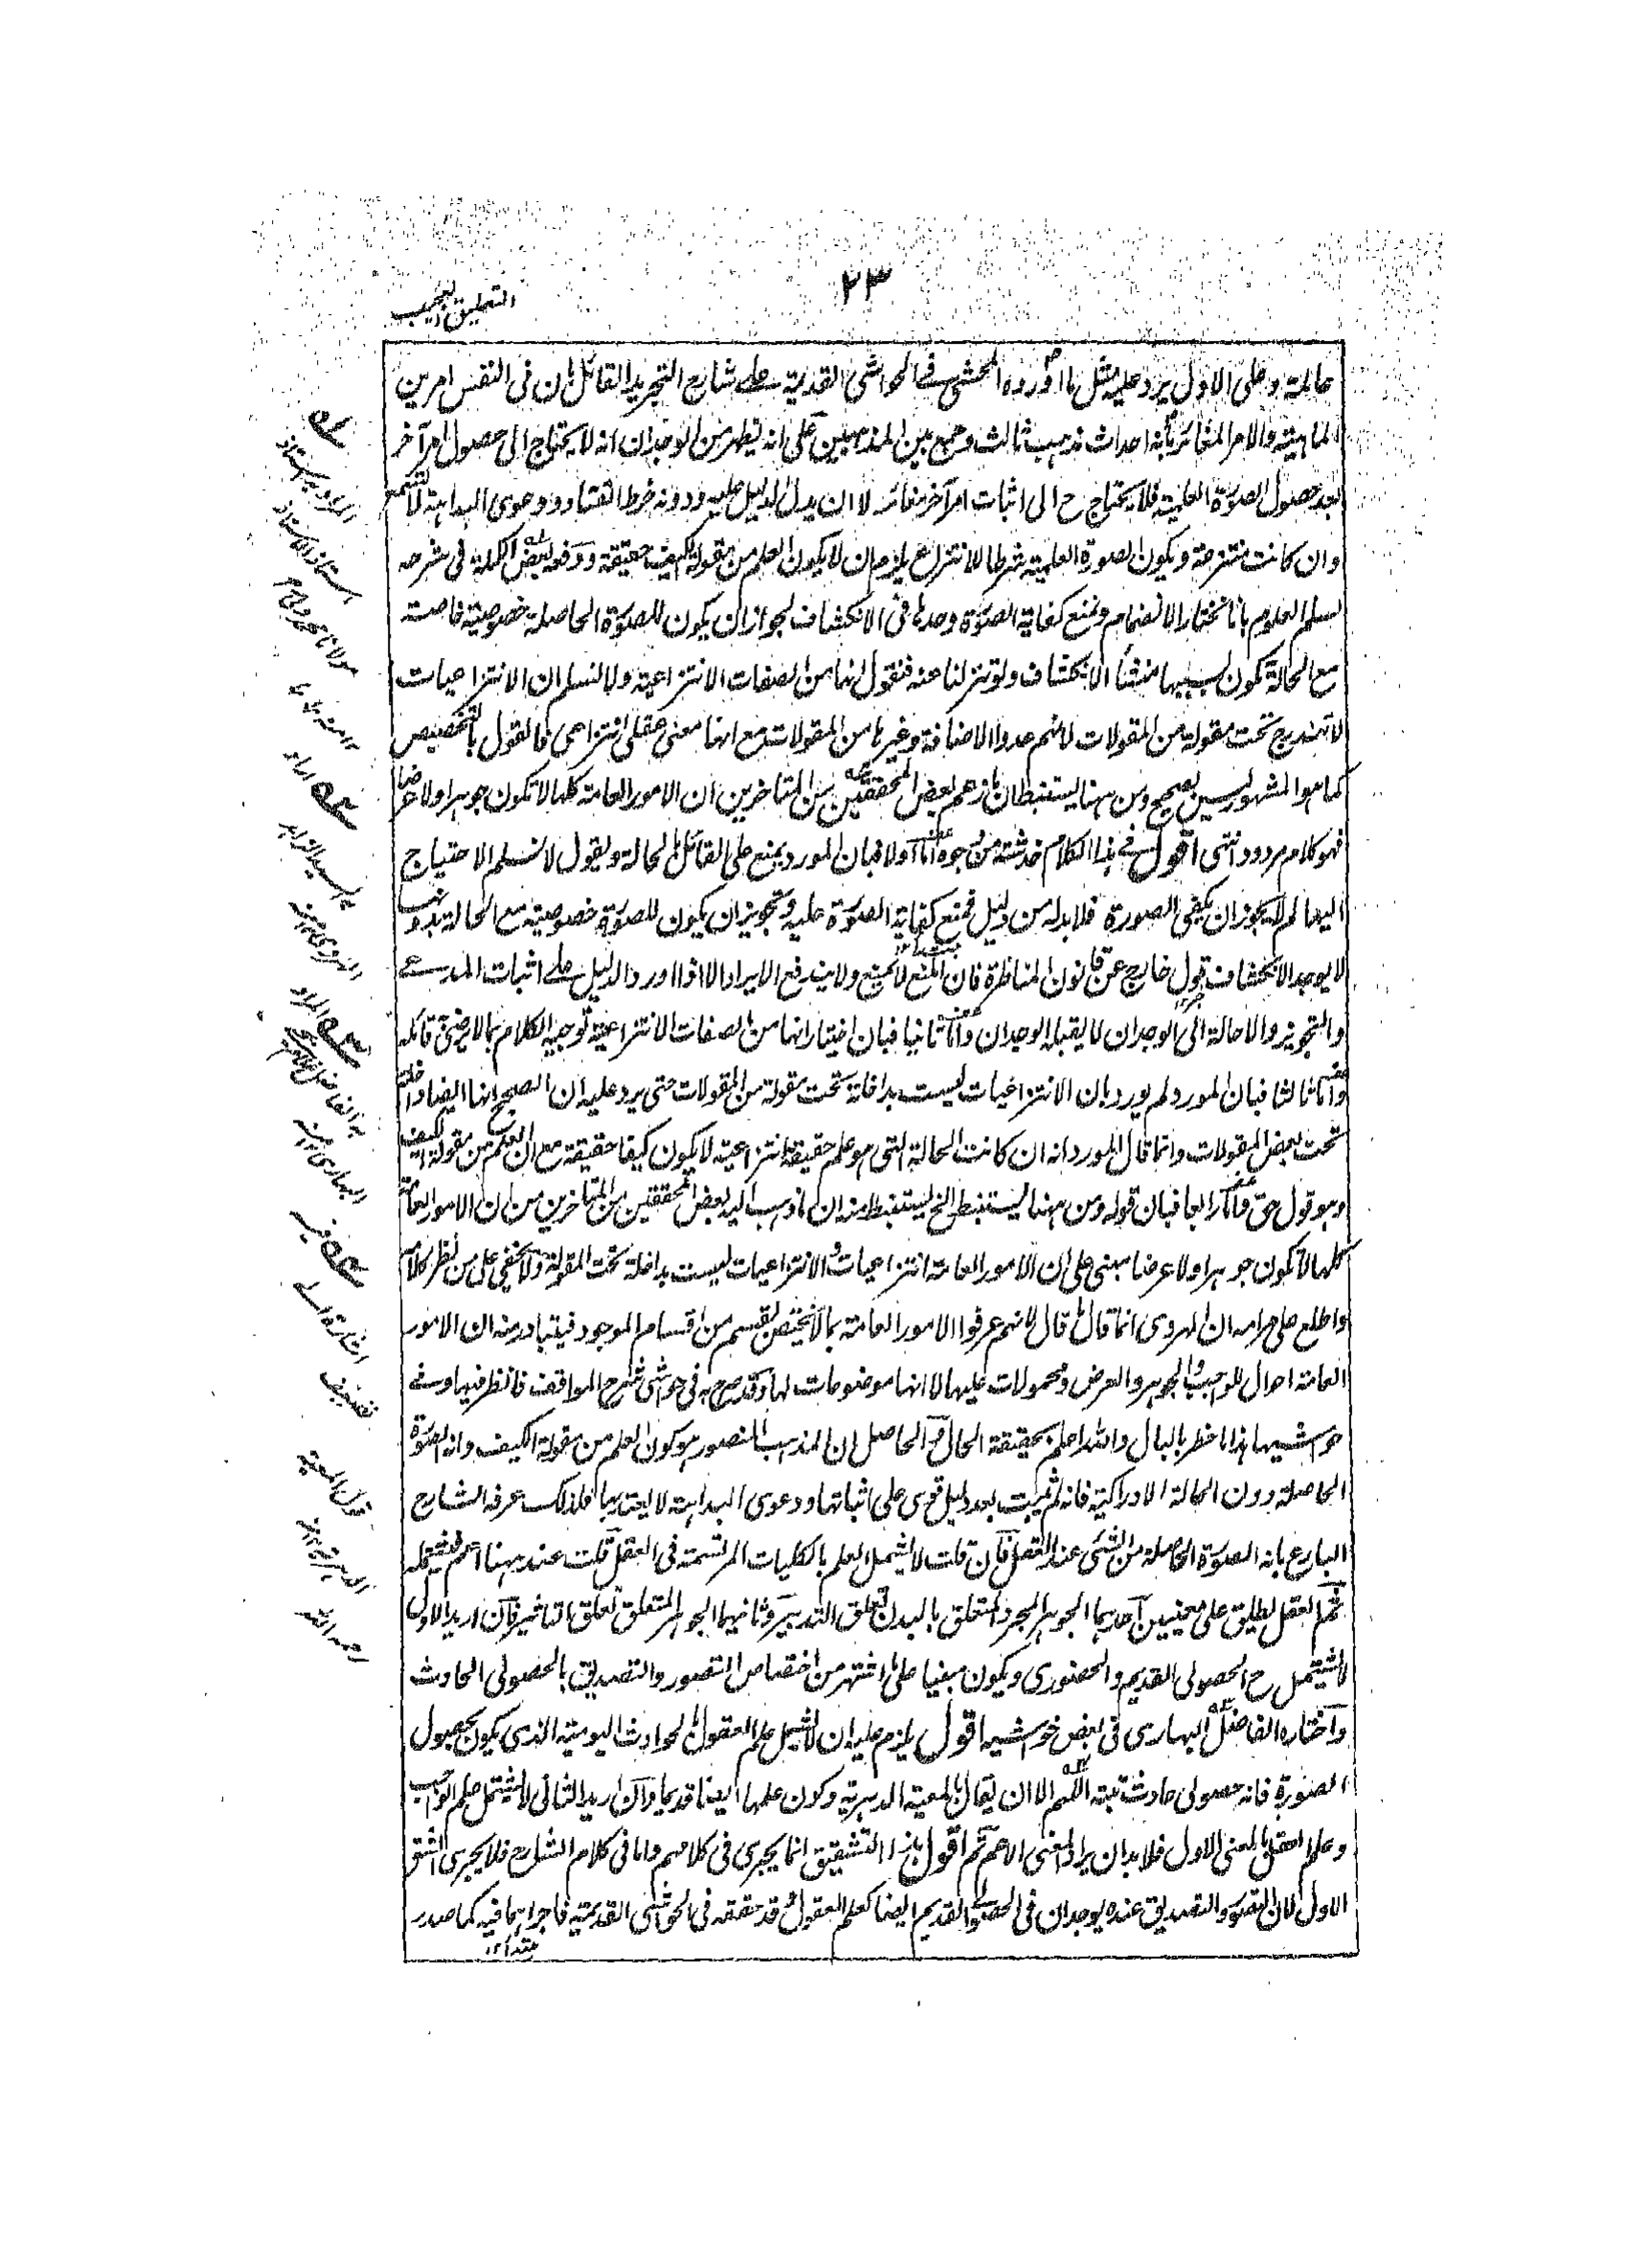 ٢٣
التعليق العجيب
حالة وعلى الاول يرد عليه مثل ما اورده المحشى فى الحواشى القديمة على شارح التجريد القائل بان فى النفس امرين
الماهية والامر المغائر بانه احداث مذهب ثالث وجمع بين المذهبين على انه يظهر من الوجدان انه لا يحتاج الى حصول امر آخر
بعد حصول الصورة العلمية فلا يحتاج ح الى اثبات امر آخر مغائر لها الا ان يدل الدليل عليه ودونه خرط القتاد ودعوى البداهة لا تسمع
وان كانت منتزعة ويكون الصورة العلمية شرطا للانتزاع يلزم ان لا يكون العلم من مقولة الكيف حقيقة ودفعه بعض الكملة فى شرحه
لسلم العلوم بانا نختار الانضمام ونمنع كفاية الصورة وحدها فى الانكشاف لجواز ان يكون للصورة الحاصلة خصوصية خاصة
مع الحالة تكون بسببها منشأ الانكشاف ولو تنزلنا عنه فنقول انها من الصفات الانتزاعية ولا نسلم ان الانتزاعيات
لا تندرج تحت مقولة من المقولات لانهم عدوا الاضافة وغيرها من المقولات مع انها معنى عقلى انتزاعى فالقول بالتخصيص
كما هو المشهور ليس بصحيح ومن ههنا يستنبط ان ما زعم بعض المحققين من المتاخرين ان الامور العامة كلها لا تكون جوهرا ولا عرضا
فهو كلام مردود انتهى اقول فى هذا الكلام خدشة من وجوه اما اولا فبان المورد يمنع على القائل بالحالة ويقول لا نسلم الاحتياج
اليها لم لا يجوز ان يكفى الصورة فلا بد له من دليل فمنع كفاية الصورة عليه وتجويز ان يكون للصورة خصوصية مع الحالة بدونها
لا يوجد الانكشاف قول خارج عن قانون المناظرة فان المنع لا يمنع ولا يندفع الايراد الا اذا اورد الدليل على اثبات المدعى
والتجويز والاحالة الى الوجدان لا يقبله الوجدان واما ثانيا فبان اختيار انها من الصفات الانتزاعية توجيه الكلام بما لا يرضى قائله
واما ثالثا فبان المورد لم يورد بان الانتزاعيات ليست بداخلة تحت مقولة من المقولات حتى يرد عليه ان الصحيح انها ايضا داخلة
تحت بعض المقولات وانما قال المورد انه ان كانت الحالة التى هو علم حقيقة انتزاعية لا يكون كيفا حقيقة مع ان العلم من مقولة الكيف
وهو قول حق واما رابعا فبان قوله ومن ههنا يستنبط الخ يستنبط منه ان ما ذهب اليه بعض المحققين من المتاخرين من ان الامور العامة
كلها لا تكون جوهرا ولا عرضا مبنى على ان الامور العامة انتزاعيات والانتزاعيات ليست بداخلة تحت المقولة ولا يخفى على من نظر كلامه
واطلع على مرامه ان الهروى انما قال ما قال لانهم عرفوا الامور العامة بما لا يختص بقسم من اقسام الموجود فيتبادر منه ان الامور
العامة احوال للواجب والجوهر والعرض ومحمولات عليها لا انها موضوعات لها وقد صرح به فى حواشى شرح المواقف فانظر فيها وفى
حواشيها هذا ما خطر بالبال والله اعلم بحقيقة الحال والحاصل ان المذهب المنصور هو كون العلم من مقولة الكيف وانه الصورة
الحاصلة دون الحالة الادراكية فانه لم يثبت بعد دليل قوى على اثباتها ودعوى البداهة لا يعتد بها فلذلك عرفه الشارح
البارع بانه الصورة الحاصلة من الشئ عند العقل فان قلت لا يشمل العلم بالكليات المرتسمة فى العقل قلت عند ههنا اعم فتشمله
ثم العقل يطلق على معنيين احدهما الجوهر المجرد المتعلق بالبدن تعلق التدبير وثانيهما الجوهر المتعلق تعلق التاثير فان اريد الاول
لا يشتمل ح الحصولى القديم والحضورى ويكون مبنيا على ما اشتهر من اختصاص التصور والتصديق بالحصولى الحادث
واختاره الفاضل البهارى فى بعض حواشيه اقول يلزم عليه ان لا يشمل علم العقول بالحوادث اليومية الذى يكون بحصول
الصورة فانه حصولى حادث البتة اللهم الا ان يقال بالمعية الدهرية وكون علمها ايضا قديما وان اريد الثانى لا يشتمل علم الواجب
وعلم العقل بالمعنى الاول فلا بد ان يراد المعنى الاعم ثم اقول هذا التشقيق انما يجرى فى كلامهم واما فى كلام الشارح فلا يجرى الشق
الاول لان التصور والتصديق عنده يوجدان فى الحصولى القديم ايضا كعلم العقول وقد حققه فى الحواشى القديمة فاجرائهما فيه كما صدر
المراد به استاذ
استاذ الاستاذ
مولانا محمد
اراد
به السيد الزاهد
الهروى
المراد
به الفاضل
البهارى
فيه
اشارة الى
تضعيف
قول المعية
الدهرية
رحمه الله